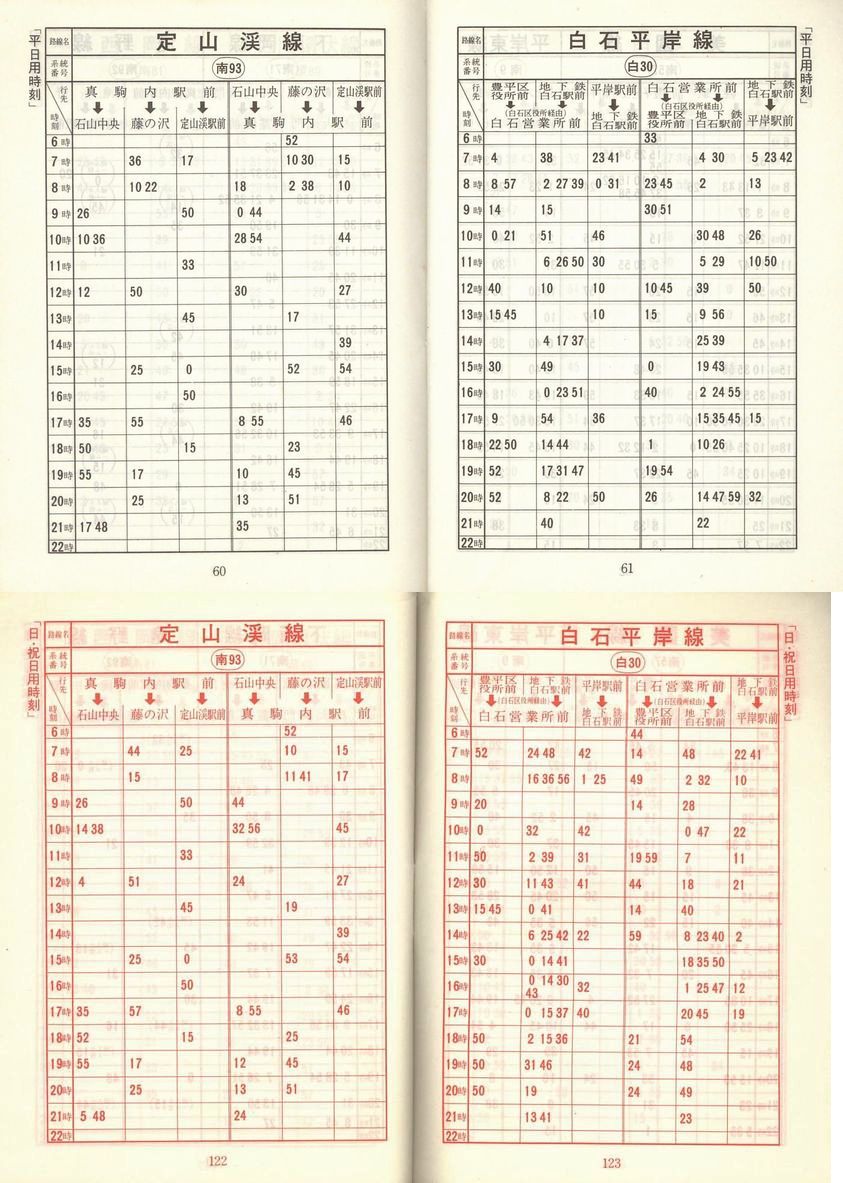 「平日用時刻」
路線名 定山渓線
系統番号 南93
行先 時刻 真駒内駅前 石山中央 藤の沢 定山渓駅前
石山中央 藤の沢 定山渓駅前 真駒内駅前
6時 52
7時 36 17 10 30 15
8時 10 22 18 2 38 10
9時 26 50 0 44
10時 10 36 28 54 44
11時 33
12時 12 50 30 27
13時 45 17
14時 39
15時 25 0 52 54
16時 50
17時 35 55 8 55 46
18時 50 15 23
19時 55 17 10 45
20時 25 13 51
21時 17 48 35
22時
60
「平日用時刻」
路線名 白石平岸線
系統番号 白30
行先 時刻 豊平区役所前 地下鉄白石駅前 平岸駅前 白石営業所前 地下鉄白石駅前
(白石区役所経由) (白石区役所経由)
白石営業所前 地下鉄白石駅前 豊平区役所前 地下鉄白石駅前 平岸駅前
6時 33
7時 4 38 23 41 4 30 5 23 42
8時 8 57 2 27 39 0 31 23 45 2 13
9時 14 15 30 51
10時 0 21 51 46 30 48 26
11時 6 26 50 30 5 29 10 50
12時 40 10 10 10 45 39 50
13時 15 45 10 15 9 56
14時 4 17 37 25 39
15時 30 49 0 19 43
16時 0 23 51 40 2 24 55
17時 9 54 36 15 35 45 15
18時 22 50 14 44 1 10 26
19時 52 17 31 47 19 54
20時 52 8 22 50 26 14 47 59 32
21時 40 22
22時
61
「日・祝日用時刻」
路線名 定山渓線
系統番号 南93
行先 時刻 真駒内駅前 石山中央 藤の沢 定山渓駅前
石山中央 藤の沢 定山渓駅前 真駒内駅前
6時 52
7時 44 25 10 15
8時 15 11 41 17
9時 26 50 44
10時 14 38 32 56 45
11時 33
12時 4 51 24 27
13時 45 19
14時 39
15時 25 0 53 54
16時 50
17時 35 57 8 55 46
18時 52 15 25
19時 55 17 12 45
20時 25 13 51
21時 5 48 24
22時
122
「日・祝日用時刻」
路線名 白石平岸線
系統番号 白30
行先 時刻 豊平区役所前 地下鉄白石駅前 平岸駅前 白石営業所前 地下鉄白石駅前
(白石区役所経由) (白石区役所経由)
白石営業所前 地下鉄白石駅前 豊平区役所前 地下鉄白石駅前 平岸駅前
6時 44
7時 52 24 48 42 14 48 22 41
8時 16 36 56 1 25 49 2 32 10
9時 20 14 28
10時 0 32 42 0 47 22
11時 50 2 39 31 19 59 7 11
12時 30 11 43 41 44 18 21
13時 15 45 0 41 14 40
14時 6 25 42 22 59 8 23 40 2
15時 30 0 14 41 18 35 50
16時 0 14 30 43 32 1 25 47 12
17時 0 15 37 40 20 45 19
18時 50 2 15 36 21 54
19時 50 31 46 24 48
20時 50 19 24 49
21時 13 41 23
22時
123